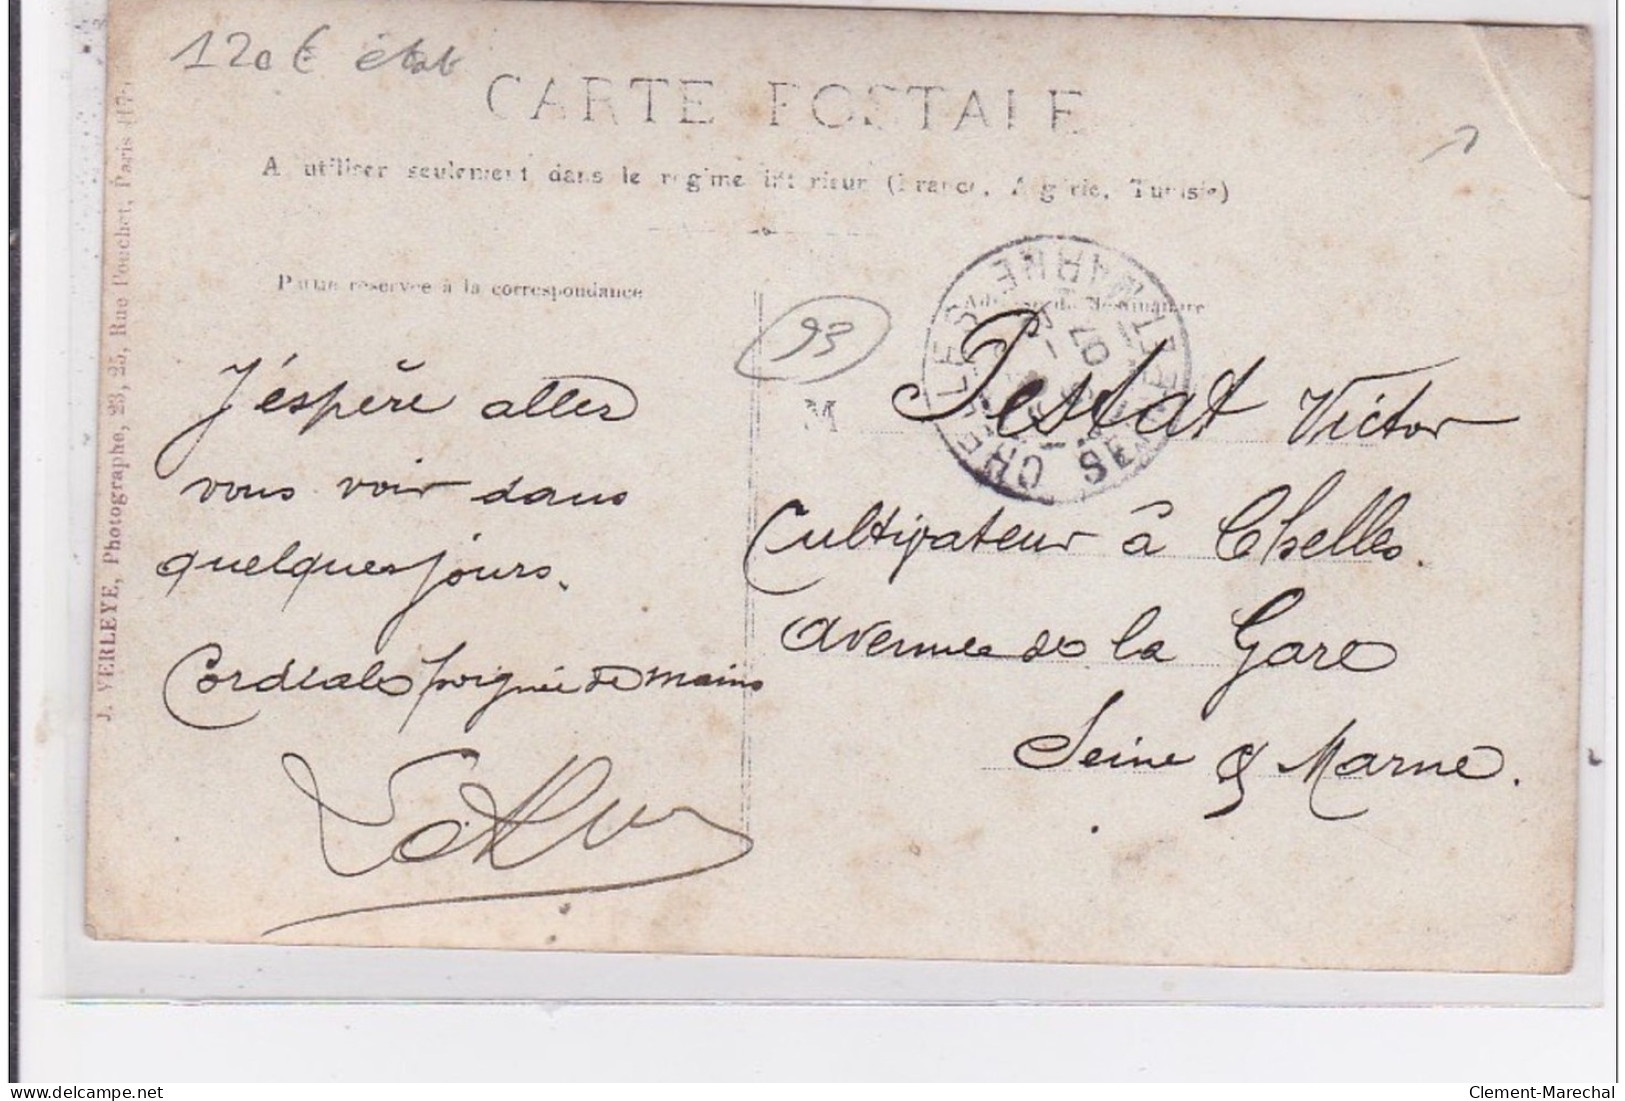 120€ état
CARTE POSTALE
A utiliser seulement dans le régime intérieur (France, Algérie, Tunisie)
Partie réservée à la correspondance
Adresse du Destinataire
J. VERLEYE, Photographe, 23, 25, Rue Pouchet, Paris (17e)
93
M
CHELLES
SEINE ET MARNE
07
J'éspère aller
vous voir dans
quelques jours.
Cordiale poignée de mains
Pestat Victor
Cultivateur à Chelles.
avenue de la Gare
Seine & Marne.
delcampe.net
Clement-Marechal